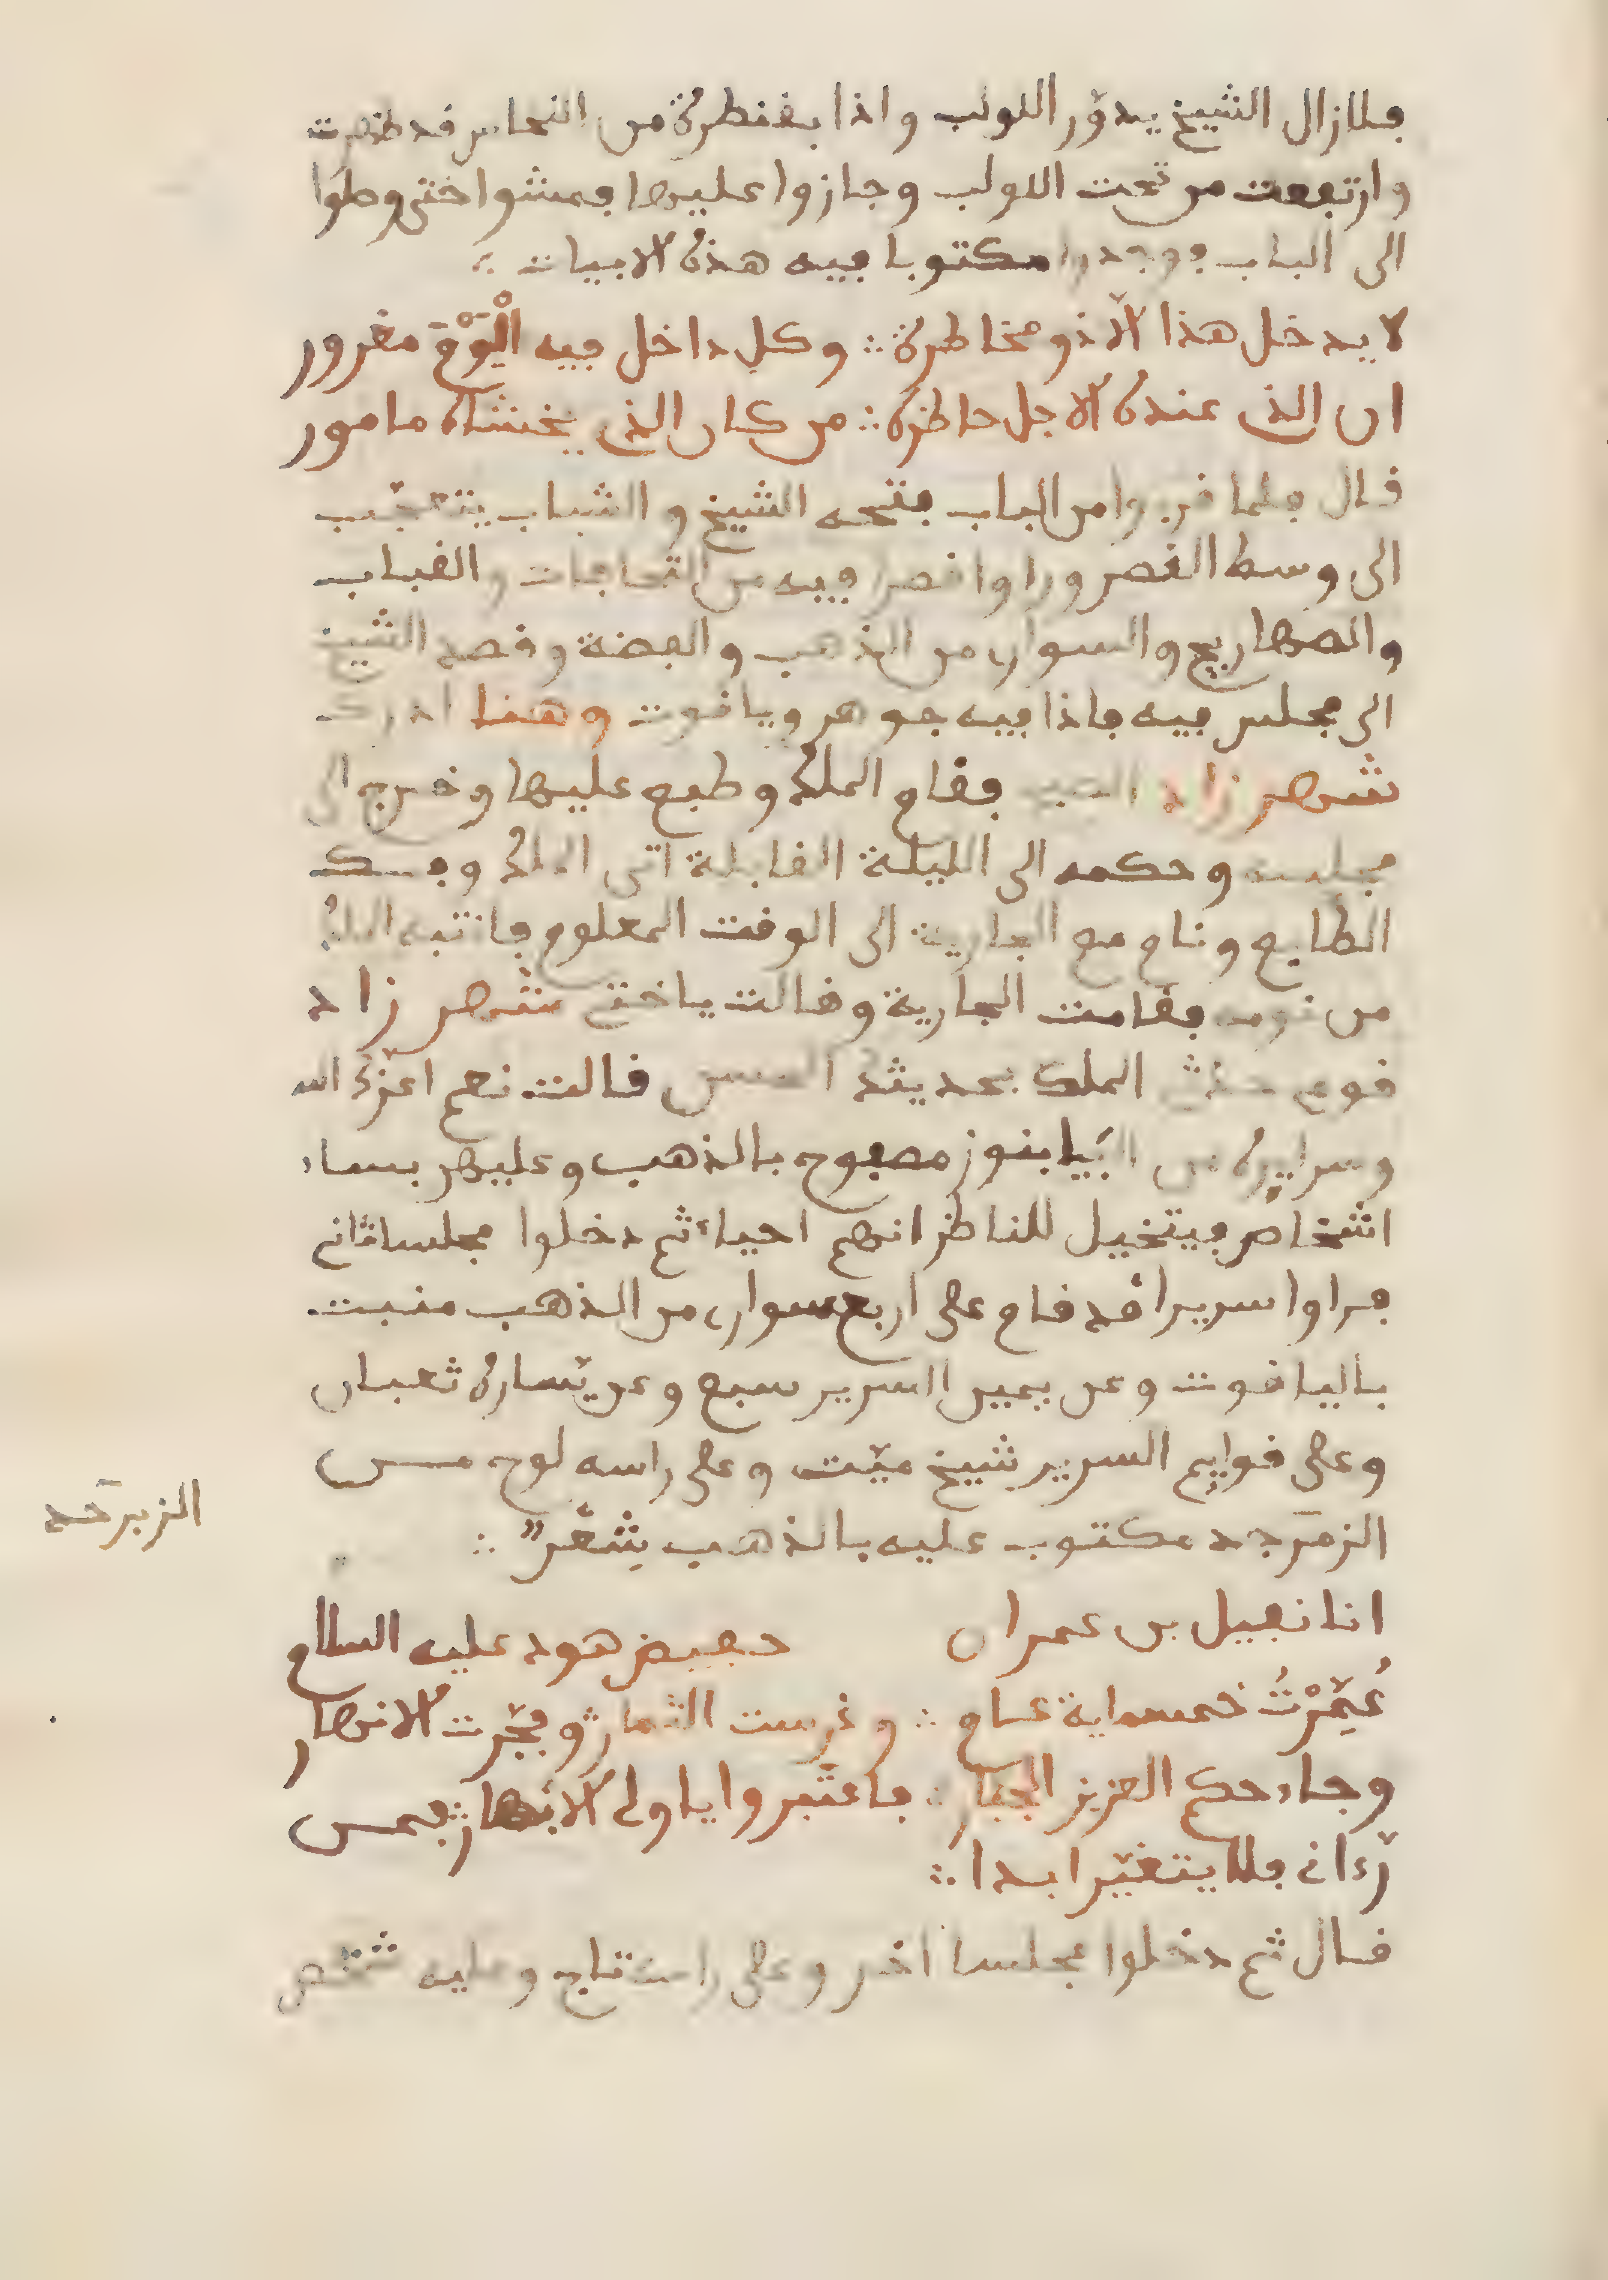 فلازال الشيخ يدوّر اللولب واذا بقنطرة من النحاس قد ظهرت
وارتفعت من تحت اللولب وجازوا عليها فمشوا حتى وصلوا
الى الباب فوجدوا مكتوبا فيه هذه الابيات
لا يدخل هذا الّا ذو مخاطرة ∴ وكل داخل فيه الْيَوْمَ مغرور
ان الذي عنده الاجل حاظره ∴ من كان الذي يخشاه مامور
قال فلما قربوا من الباب فتحه الشيخ والشباب يتعجّب
الى وسط القصر وراوا قصرا فيه من التحافات والقباب
والصهاريج والسواري من الذهب والفضة وقصد الشيخ
الى مجلس فيه فاذا فيه جوهر وياقوت وهنا ادرك
شهر زاد الصبح فقام الملك وطبع عليها وخرج الى
مجلسه وحكمه الى الليلة القابلة اتى الملك وفك
الطابع ونام مع الجارية الى الوقت المعلوم فانتبه الملك
من نومه فقامت الجارية وقالت ياختي شهر زاد
قومي حدّث الملك بحديثك الحسن قالت نعم اعزّك الله
وسرايره من البيابنوز مصبوح بالذهب وعليهم بساء
اشخاص فيتخيل للناظر انهم احياء ثم دخلوا مجلسا ثاني
فراوا سريرا قد قام على اربع سواري من الذهب منبت
بالياقوت وعن يمين السرير سبع وعن يّساره ثعبان
وعلى قوايم السرير شيخ ميّت وعلى راسه لوح مــن
الزمرّجد مكتوب عليه بالذهب شعْر ∴
الزبرّجد
انا نفيل بن عمران حفيض هود عليه السلام
عُمِّرْتُ خمسماية عام ∴ وغرست الثمار ∴ وفجّرت الانهار
وجاء حكم العزيز الجبّار ∴ فاعتبروا ياولي الابصار ∴ فمن
رّءاني فلا يتغيّر ابدا ∴
قال ثم دخلوا مجلسا اخر وعلى راسه تاج وعليه شخص